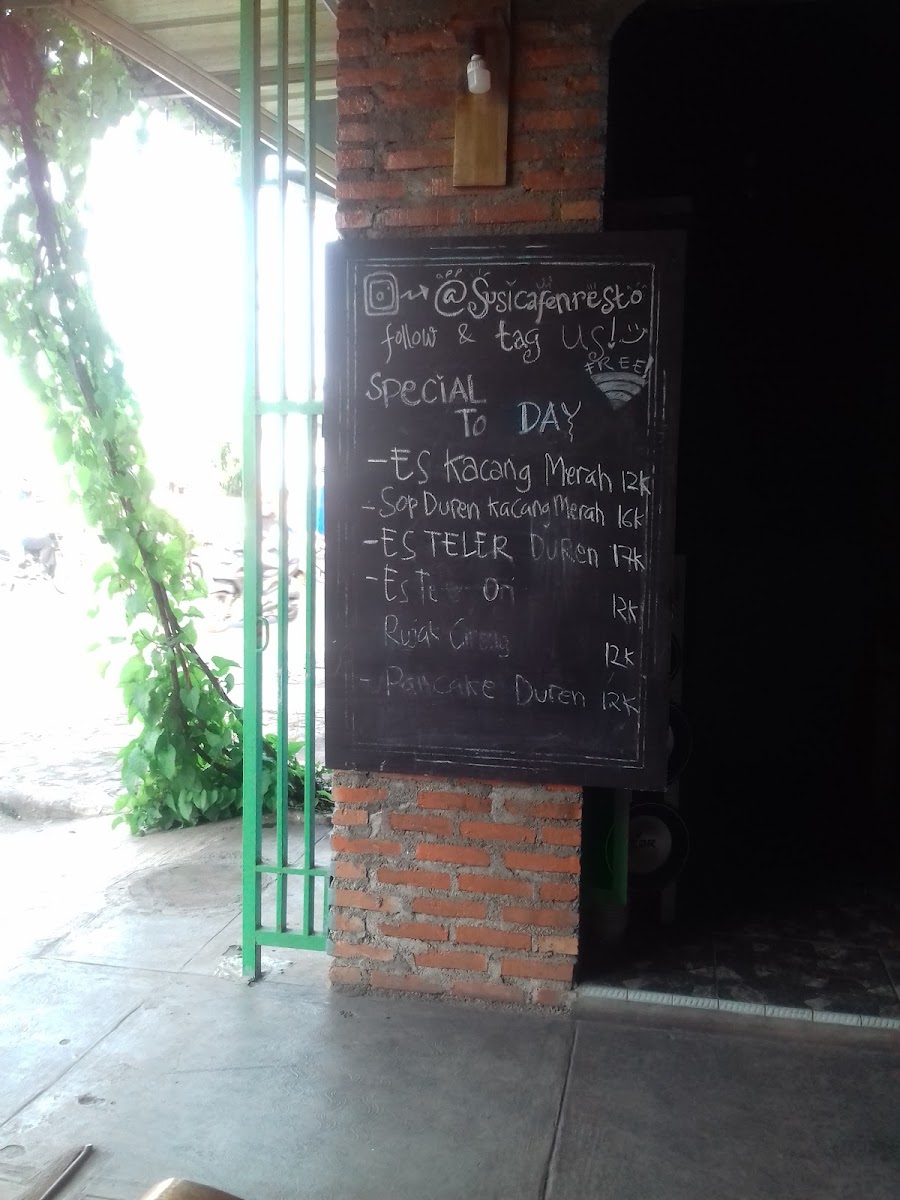 @Susicafenresto
follow & tag us!
FREE!
SPECIAL
TO DAY
- ES Kacang Merah 12K
- Sop Duren Kacang Merah 16K
- ES TELER Duren 17K
- Es Ori 12K
Rujak Cireng 12K
- Pancake Duren 12K